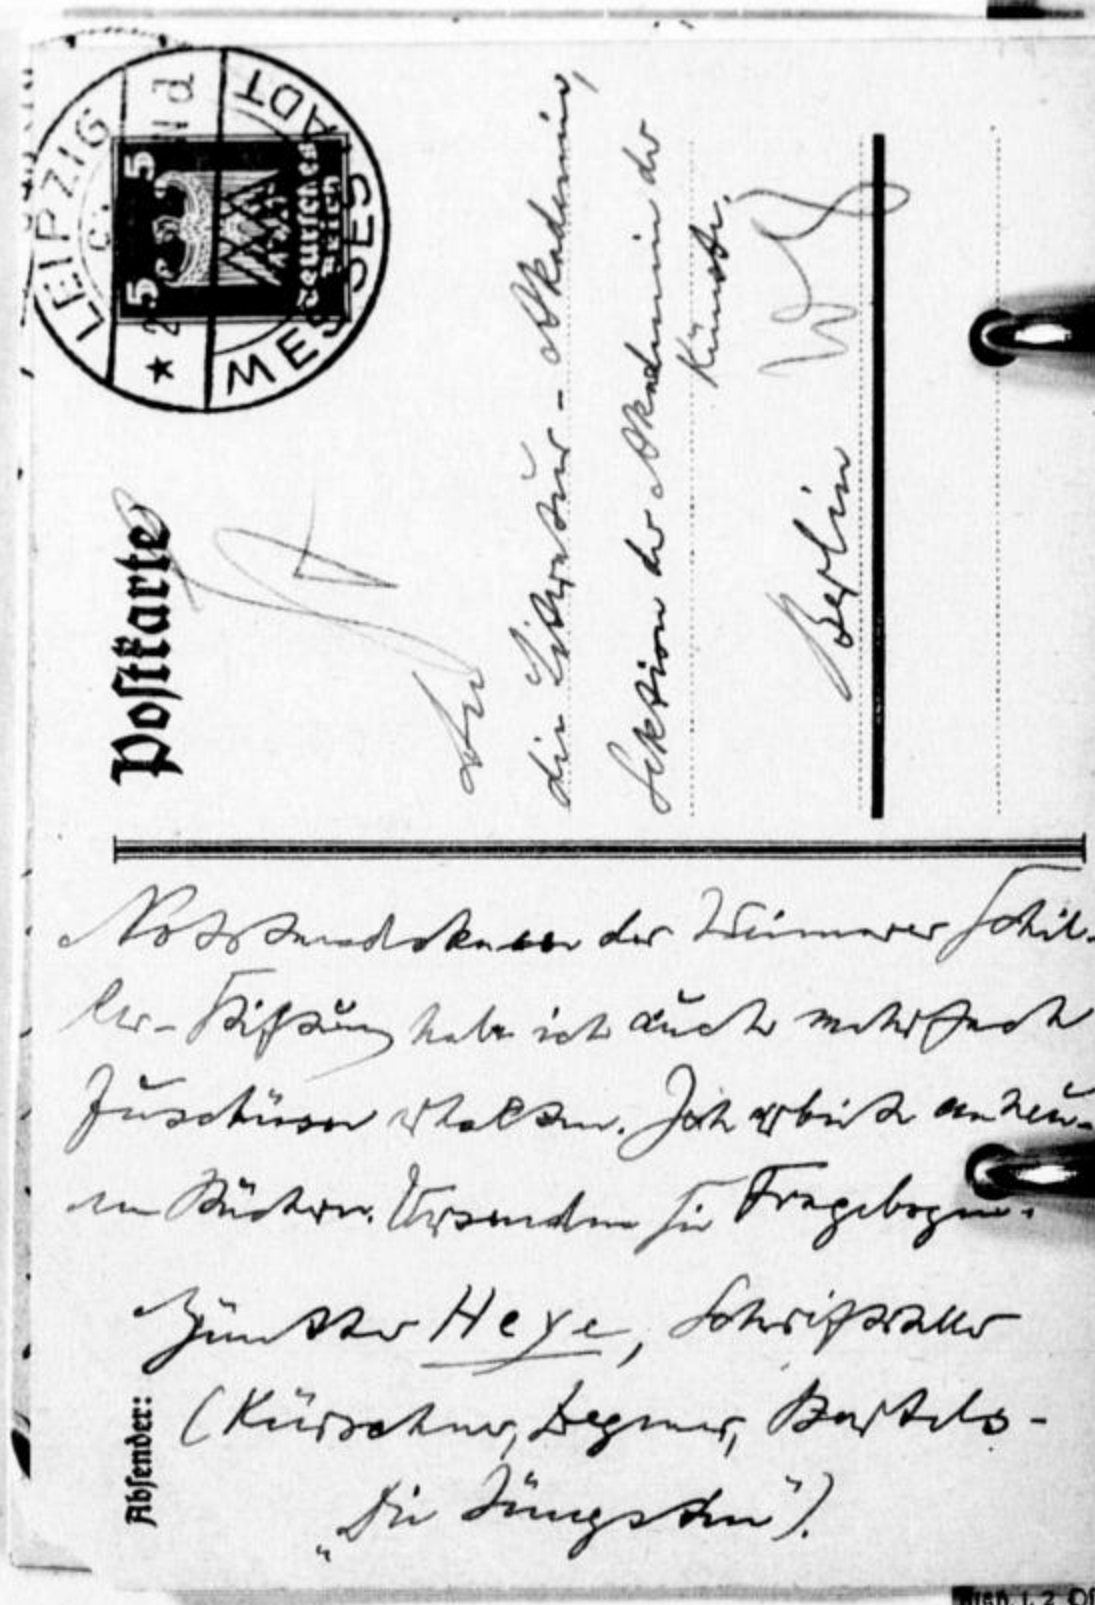 LEIPZIG
MESSESTADT
5 5
Deutsches
Reich
Postkarte
An
die Literatur-Akademie,
Sektion der Akademie der
Künste.
Berlin W 8
Notstandskassen der Weimarer Schil-
ler-Stiftung habe ich auch mehrfach
Zuschüsse erhalten. Ich arbeite an neu-
en Büchern. Versenden Sie Fragebogen.
Absender:
Günther Heye, Schriftsteller
(Kürschner, Degener, Bartels-
„Die Jüngsten").